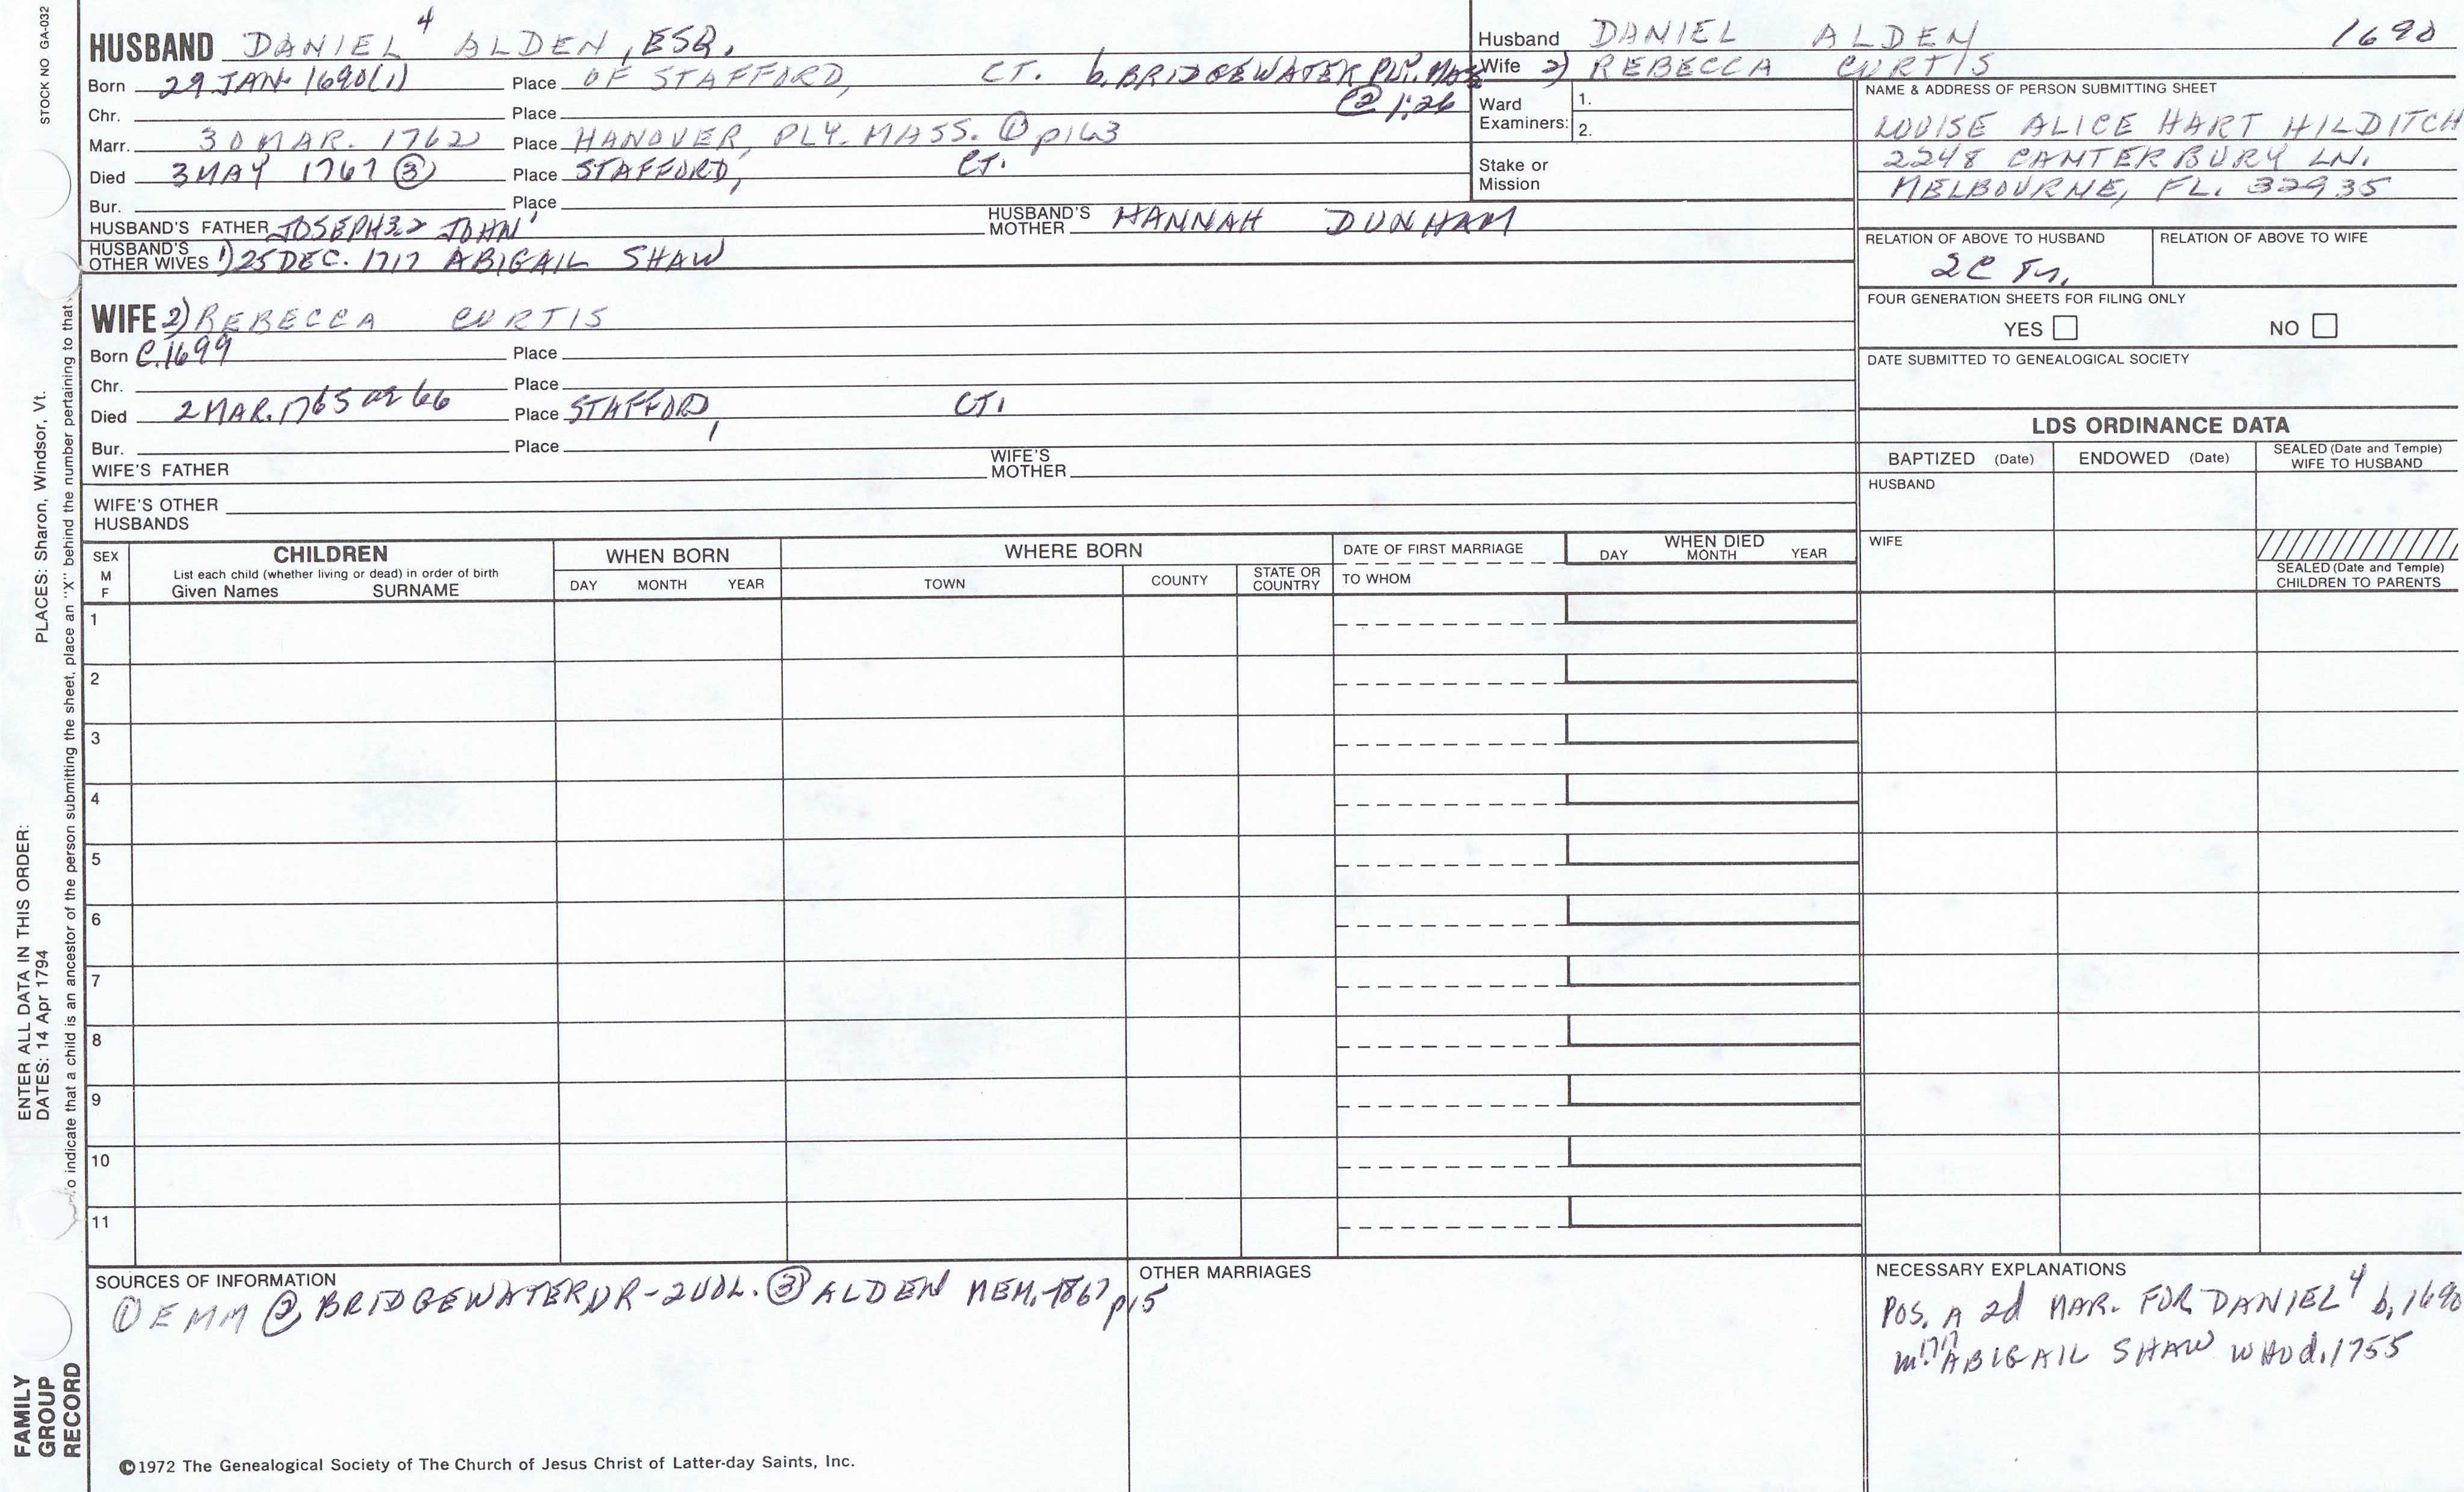 STOCK NO GA-032
HUSBAND DANIEL 4 ALDEN, ESQ.
Born 29 JAN. 1690(1) Place OF STAFFORD, CT. b. BRIDGEWATER PLY. MASS
② 1:26
Chr. Place
Marr. 30 MAR. 1762 Place HANOVER, PLY. MASS. ① p163
Died 3 MAY 1767 ③ Place STAFFORD, CT.
Bur. Place
HUSBAND'S FATHER JOSEPH 3,2 JOHN 1 HUSBAND'S MOTHER HANNAH DUNHAM
HUSBAND'S OTHER WIVES 1) 25 DEC. 1717 ABIGAIL SHAW
WIFE 2) REBECCA CURTIS
Born C. 1699 Place
Chr. Place
Died 2 MAR. 1765 or 66 Place STAFFORD, CT.
Bur. Place
WIFE'S FATHER WIFE'S MOTHER
WIFE'S OTHER HUSBANDS
Husband DANIEL ALDEN 1690
Wife 2) REBECCA CURTIS
Ward Examiners: 1.
2.
Stake or Mission
NAME & ADDRESS OF PERSON SUBMITTING SHEET
LOUISE ALICE HART HILDITCH
2248 CANTERBURY LN.
MELBOURNE, FL. 32935
RELATION OF ABOVE TO HUSBAND RELATION OF ABOVE TO WIFE
FOUR GENERATION SHEETS FOR FILING ONLY
YES NO
DATE SUBMITTED TO GENEALOGICAL SOCIETY
LDS ORDINANCE DATA
BAPTIZED (Date) ENDOWED (Date) SEALED (Date and Temple) WIFE TO HUSBAND
HUSBAND
WIFE
SEALED (Date and Temple) CHILDREN TO PARENTS
SEX M F
CHILDREN
List each child (whether living or dead) in order of birth
Given Names SURNAME
WHEN BORN
DAY MONTH YEAR
WHERE BORN
TOWN COUNTY STATE OR COUNTRY
DATE OF FIRST MARRIAGE
TO WHOM
WHEN DIED
DAY MONTH YEAR
1
2
3
4
5
6
7
8
9
10
11
SOURCES OF INFORMATION
① EMM ② BRIDGEWATER VR-2VOL. ③ ALDEN MEM. 1867 p15
OTHER MARRIAGES
NECESSARY EXPLANATIONS
POS. A 2d MAR. FOR DANIEL 4 b. 1690
m. 1717 ABIGAIL SHAW WHO d. 1755
©1972 The Genealogical Society of The Church of Jesus Christ of Latter-day Saints, Inc.
FAMILY GROUP RECORD
ENTER ALL DATA IN THIS ORDER:
DATES: 14 Apr 1794 PLACES: Sharon, Windsor, Vt.
To indicate that a child is an ancestor of the person submitting the sheet, place an "X" behind the number pertaining to that